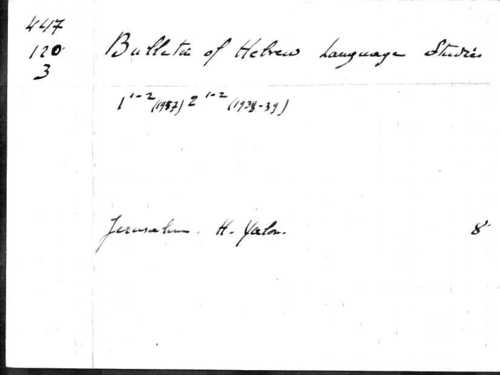 447
120
3
Bulletin of Hebrew Language Studies
1 1-2 (1937) 2 1-2 (1938-39)
Jerusalem. H. Yalon. 8°